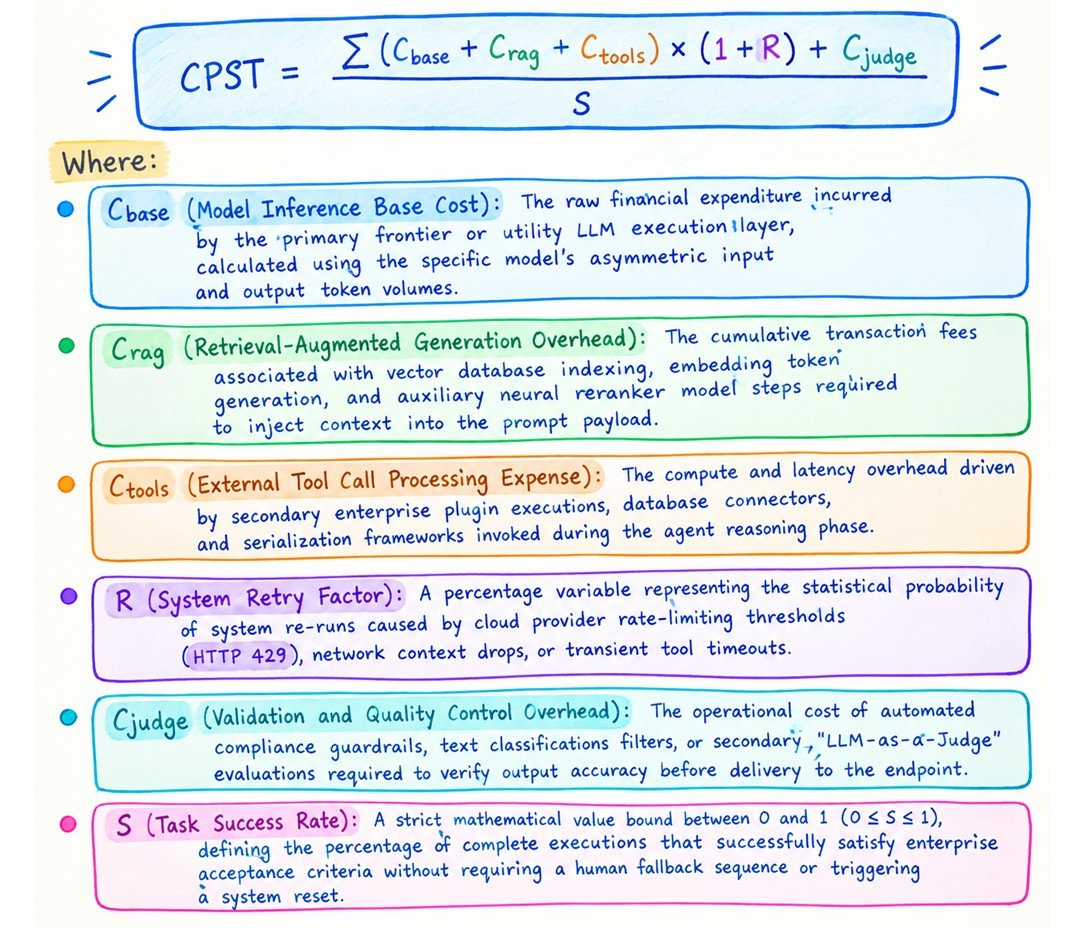 CPST = ∑ (Cbase + Crag + Ctools) × (1 + R) + Cjudge
S
Where:
Cbase (Model Inference Base Cost): The raw financial expenditure incurred
by the primary frontier or utility LLM execution layer,
calculated using the specific model's asymmetric input
and output token volumes.
Crag (Retrieval-Augmented Generation Overhead): The cumulative transaction fees
associated with vector database indexing, embedding token
generation, and auxiliary neural reranker model steps required
to inject context into the prompt payload.
Ctools (External Tool Call Processing Expense): The compute and latency overhead driven
by secondary enterprise plugin executions, database connectors,
and serialization frameworks invoked during the agent reasoning phase.
R (System Retry Factor): A percentage variable representing the statistical probability
of system re-runs caused by cloud provider rate-limiting thresholds
(HTTP 429), network context drops, or transient tool timeouts.
Cjudge (Validation and Quality Control Overhead): The operational cost of automated
compliance guardrails, text classifications filters, or secondary, "LLM-as-a-Judge"
evaluations required to verify output accuracy before delivery to the endpoint.
S (Task Success Rate): A strict mathematical value bound between 0 and 1 (0 ≤ S ≤ 1),
defining the percentage of complete executions that successfully satisfy enterprise
acceptance criteria without requiring a human fallback sequence or triggering
a system reset.